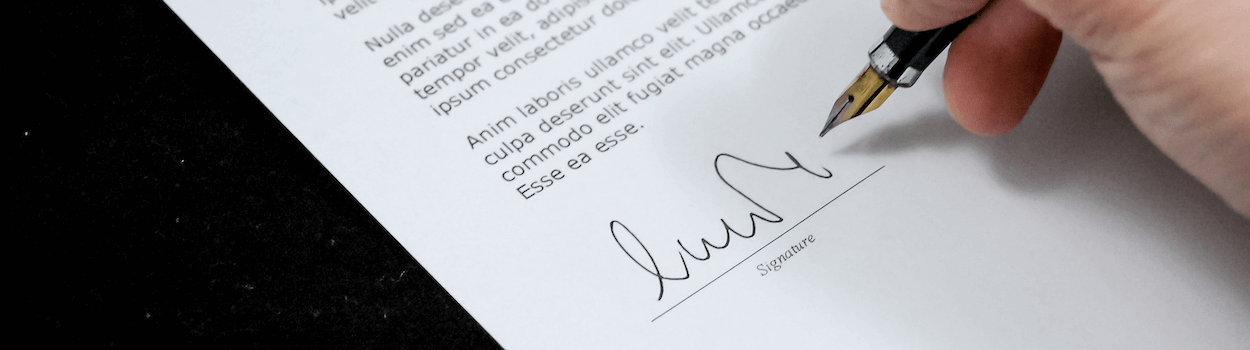 velit
Nulla dese
enim sed ea
pariatur in ea do
tempor velit, adipis
ipsum consectetur dolo
Anim laboris ullamco velit te
culpa deserunt sint elit. Ullamc
commodo elit fugiat magna occaec
Esse ea esse.
Signature